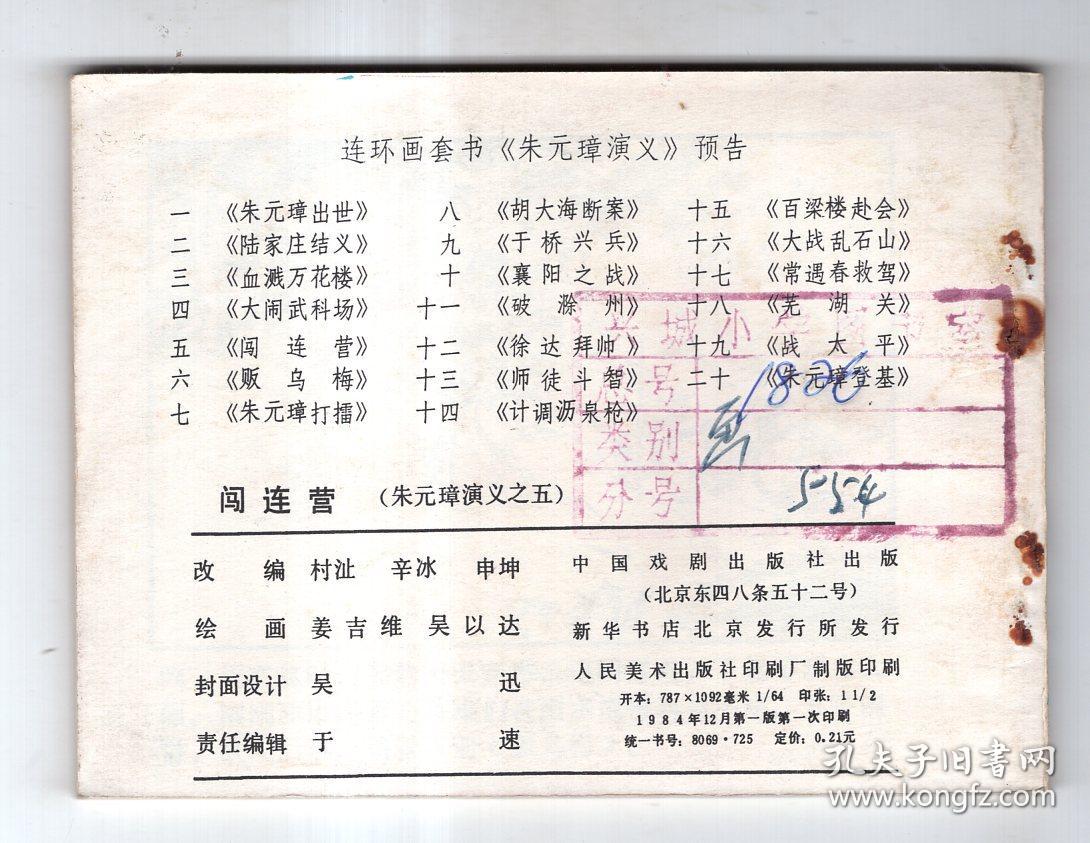 连环画套书《朱元璋演义》预告
一 《朱元璋出世》 八 《胡大海断案》 十五 《百梁楼赴会》
二 《陆家庄结义》 九 《于桥兴兵》 十六 《大战乱石山》
三 《血溅万花楼》 十 《襄阳之战》 十七 《常遇春救驾》
四 《大闹武科场》 十一 《破滁州》 十八 《芜湖关》
五 《闯连营》 十二 《徐达拜帅》 十九 《战太平》
六 《贩乌梅》 十三 《师徒斗智》 二十 《朱元璋登基》
七 《朱元璋打擂》 十四 《计调沥泉枪》
城小
总号 1826
类别 画
分号 5-54
闯连营 (朱元璋演义之五)
改编 村沚 辛冰 申坤
绘画 姜吉维 吴以达
封面设计 吴迅
责任编辑 于速
中国戏剧出版社出版
(北京东四八条五十二号)
新华书店北京发行所发行
人民美术出版社印刷厂制版印刷
开本: 787×1092毫米 1/64 印张: 1 1/2
1984年12月第一版第一次印刷
统一书号: 8069·725 定价: 0.21元
孔夫子旧书网
www.kongfz.com